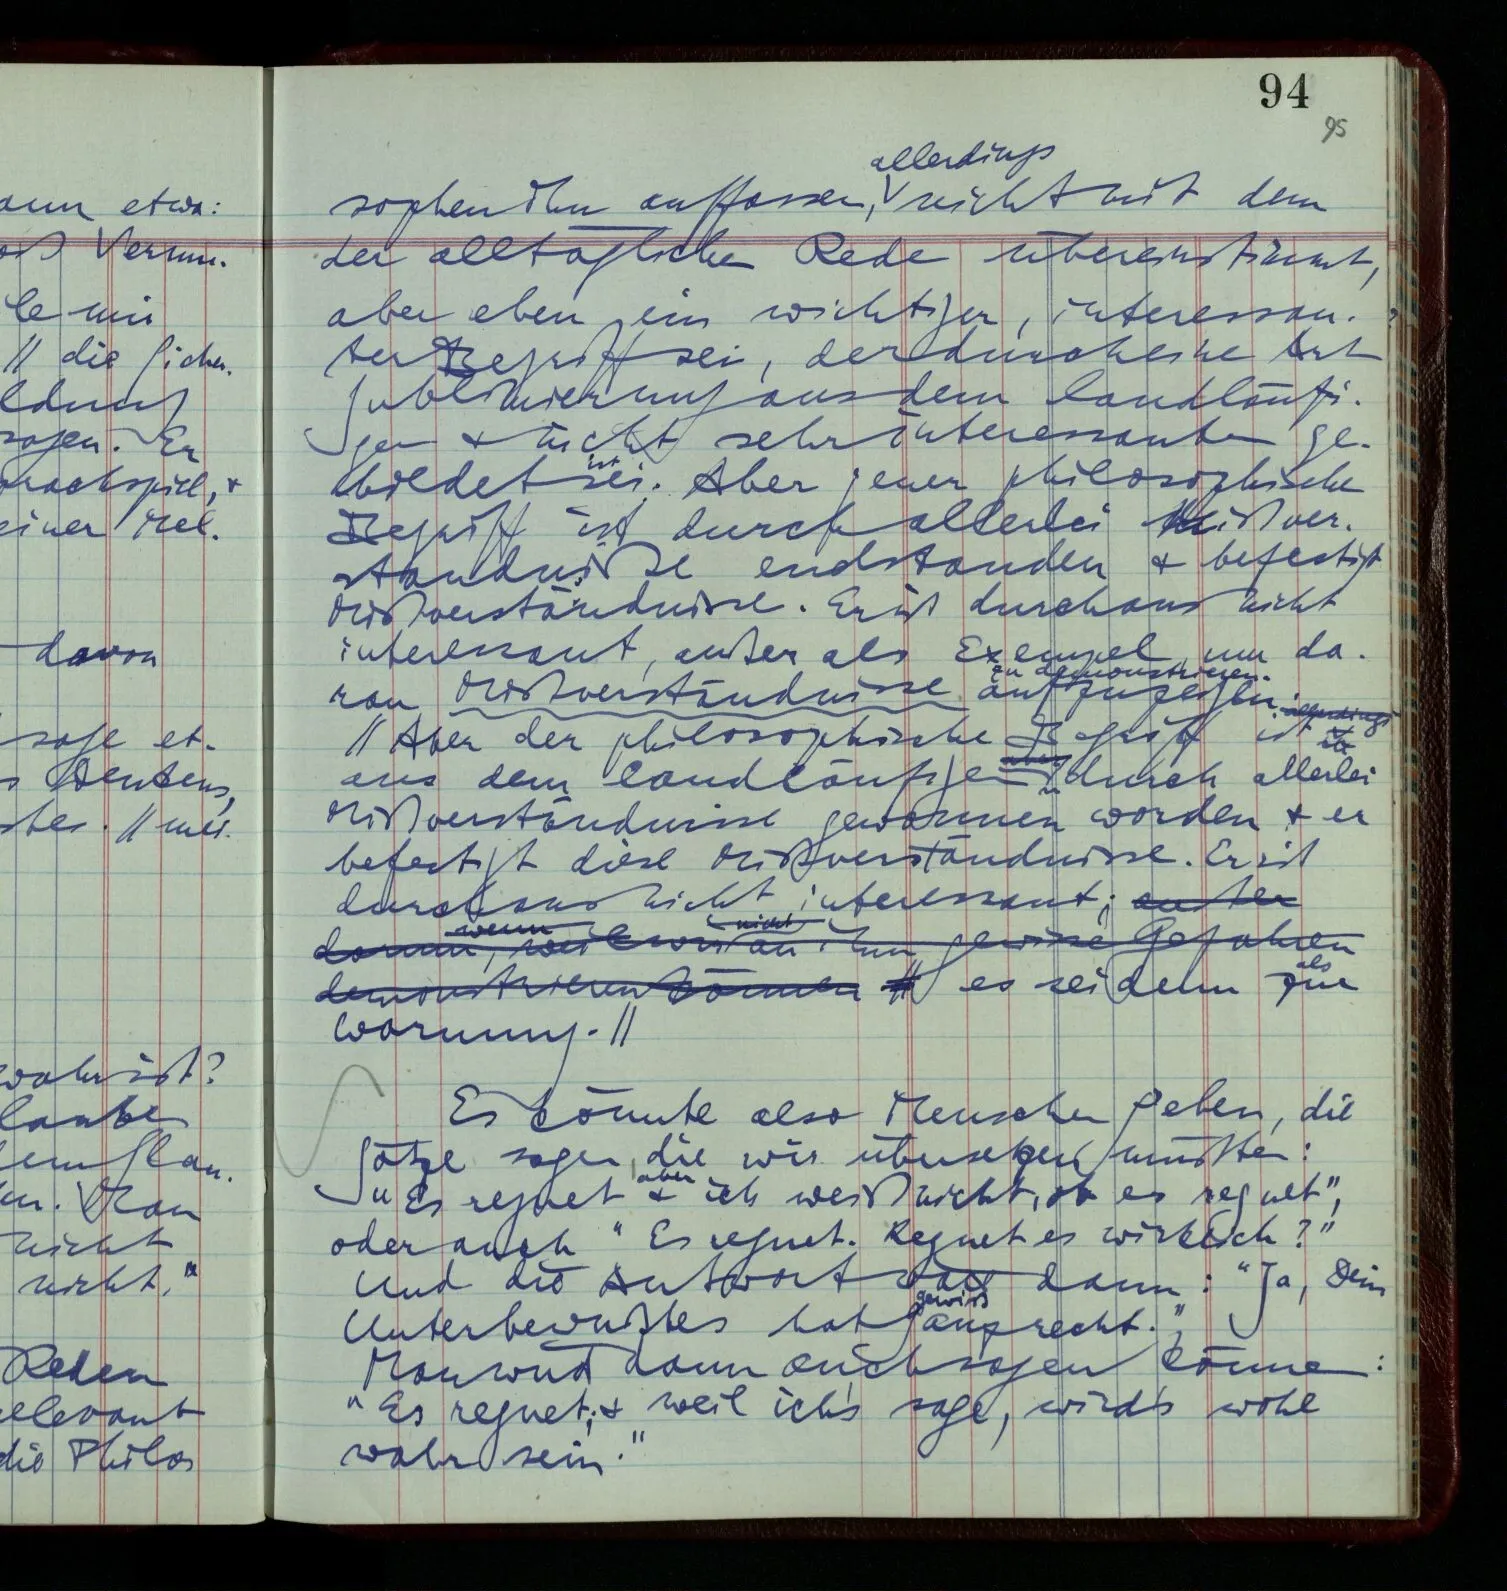 94
95
ann etwa:
le mir
// die Sicher-
sagen. Er
prachspiel, &
einer Mel-
davon
sage et-
s Denkens,
wahr ist?
laube
n. Man
nicht
nicht."
Reden
relevant
die Philos
allerdings
sophen ihn auffassen, nicht mit dem
der alltäglichen Rede übereinstimmt,
aber eben ein wichtiger, interessan-
ter Begriff sei, der durch eine Art
Sublimierung aus dem landläufi-
gen & nicht sehr interessanten ge-
ist
bildet sei. Aber jener philosophische
Begriff ist durch allerlei Mißver-
ständniße endstanden & befestigt
Mißverständnisse. Er ist durchaus nicht
interessant, außer als Exempel um da-
zu demonstrieren.
ran Mißverständnisse aufzuzeigen.
allerdings
// Aber der philosophische Begriff ist
aber
aus dem landläufigen durch allerlei
Mißverständnisse gewonnen worden & er
befestigt diese Mißverständnisse. Er ist
durchaus nicht interessant; außer
wenn nicht
darum, weil wir an ihm gewisse Gefahren
als
demonstrieren können // es sei denn zur
Warnung. //
Es könnte also Menschen geben, die
Sätze sagen, die wir übersetzen müßten:
aber
"Es regnet & ich weiß nicht, ob es regnet",
oder auch "Es regnet. Regnet es wirklich?"
Und die Antwort wär dann: "Ja, Dein
gewiß
Unterbewußtes hat ganz recht.",
Man wird dann auch sagen können:
"Es regnet; & weil ich's sage, wird's wohl
wahr sein."